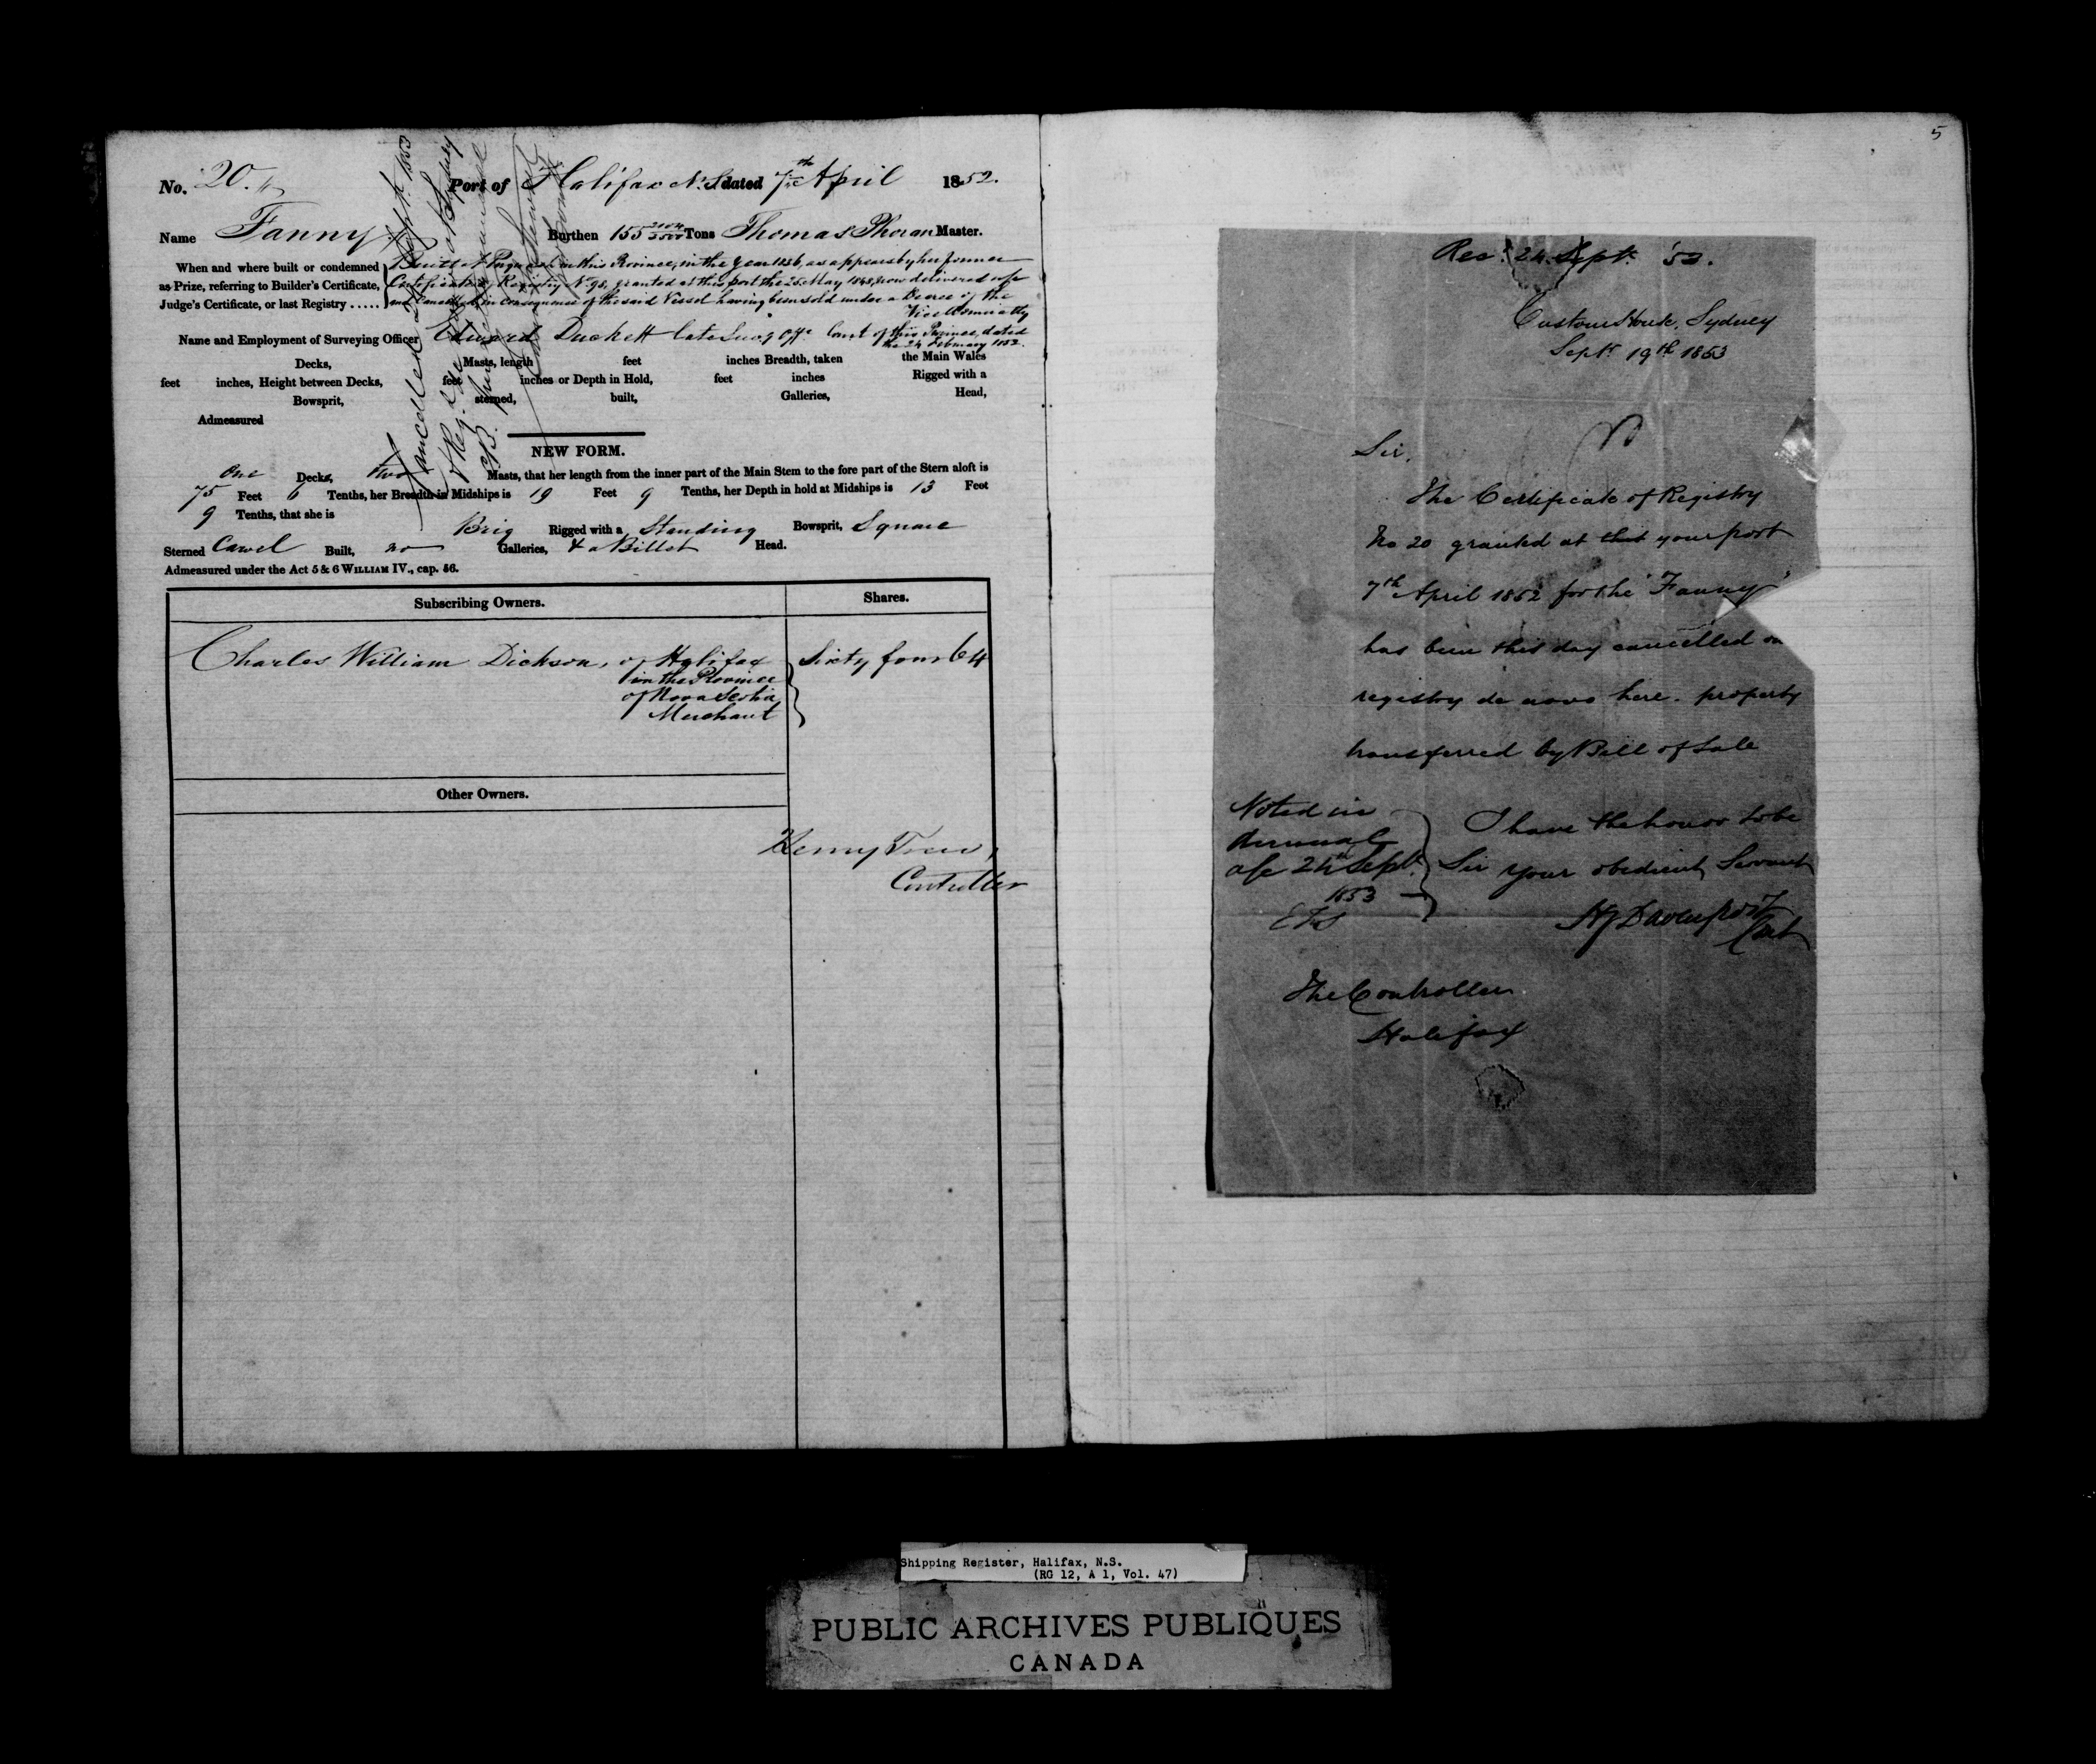 No. 20. Port of Halifax N.S. dated 7th April 1852.
Name Fanny Burthen 155 2104/3500 Tons Thomas Phoran Master.
When and where built or condemned Built at in this Province, in the Year 1836, as appears by her former
as Prize, referring to Builder's Certificate, Certificate of Registry No 98, granted at this port the 25 May 1848, now delivered up
Judge's Certificate, or last Registry ..... and Cancelled in consequence of the said Vessel having been sold under a Decree of the
Vice Admiralty
Name and Employment of Surveying Officer Edward Duckett late Survg Offr Court of this Province, dated
the 24 February 1852.
Decks, Masts, length feet inches Breadth, taken the Main Wales
feet inches, Height between Decks, feet inches or Depth in Hold, feet inches Rigged with a
Bowsprit, sterned, built, Galleries, Head,
Admeasured
Cancelled Septr. 1853
NEW FORM.
One Decks, two Masts, that her length from the inner part of the Main Stem to the fore part of the Stern aloft is
75 Feet 6 Tenths, her Breadth in Midships is 19 Feet 9 Tenths, her Depth in hold at Midships is 13 Feet
9 Tenths, that she is
Brig Rigged with a Standing Bowsprit, Square
Sterned Carvel Built, no Galleries, & a Billet Head.
Admeasured under the Act 5 & 6 WILLIAM IV., cap. 56.
Subscribing Owners. Shares.
Charles William Dickson, of Halifax Sixty four 64
in the Province
of Nova Scotia
Merchant
Other Owners.
Henry Trew,
Controller
5
Rec. 24 Sept. '53.
Custom House, Sydney
Septr 19th 1853
Sir,
The Certificate of Registry
No 20 granted at that your port
7th April 1852 for the "Fanny"
has been this day cancelled on
registry de novo here. property
transferred by Bill of Sale
Noted in
Annual
a/c 24th Septr.
1853
I have the honor to be
Sir your obedient Servant
HJ Davenport
Cont
The Controller
Halifax
Shipping Register, Halifax, N.S.
(RG 12, A 1, Vol. 47)
PUBLIC ARCHIVES PUBLIQUES
CANADA